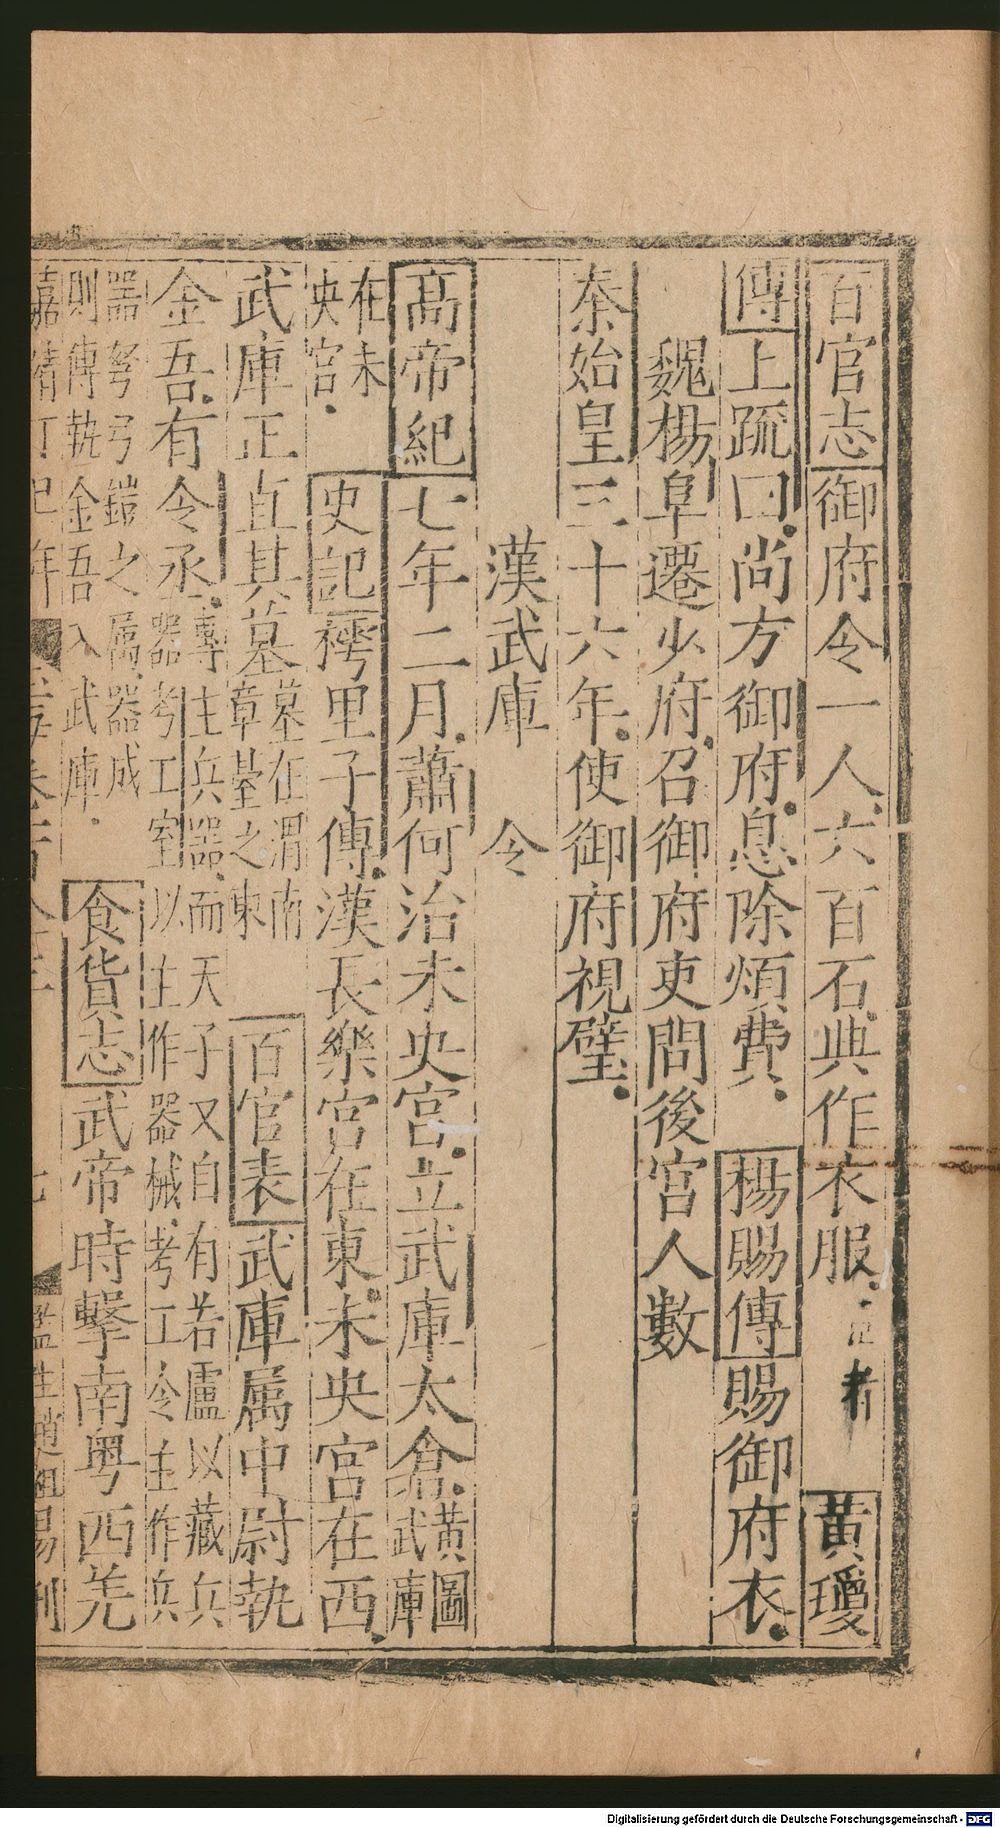 百官志御府令一人六百石典作衣服 者 黃瓊
傳上疏曰尚方御府息除煩費 楊賜傳賜御府衣
魏楊阜遷少府召御府吏問後宮人數
秦始皇三十六年使御府視璧
漢武庫 令
高帝紀七年二月蕭何治未央宮立武庫太倉黃圖武庫
在未央宮 史記樗里子傳漢長樂宮在東未央宮在西
武庫正直其墓墓在渭南章臺之東 百官表武庫属中尉執
金吾有令丞專主兵器而天子又自有若盧以藏兵器考工室以主作器械考工令主作兵
器弩弓鎧之属器成則傳執金吾入武庫 食貨志武帝時擊南粤西羌
嘉靖丁巳年 七 監生趙祖 刊
Digitalisierung gefördert durch die Deutsche Forschungsgemeinschaft - DFG